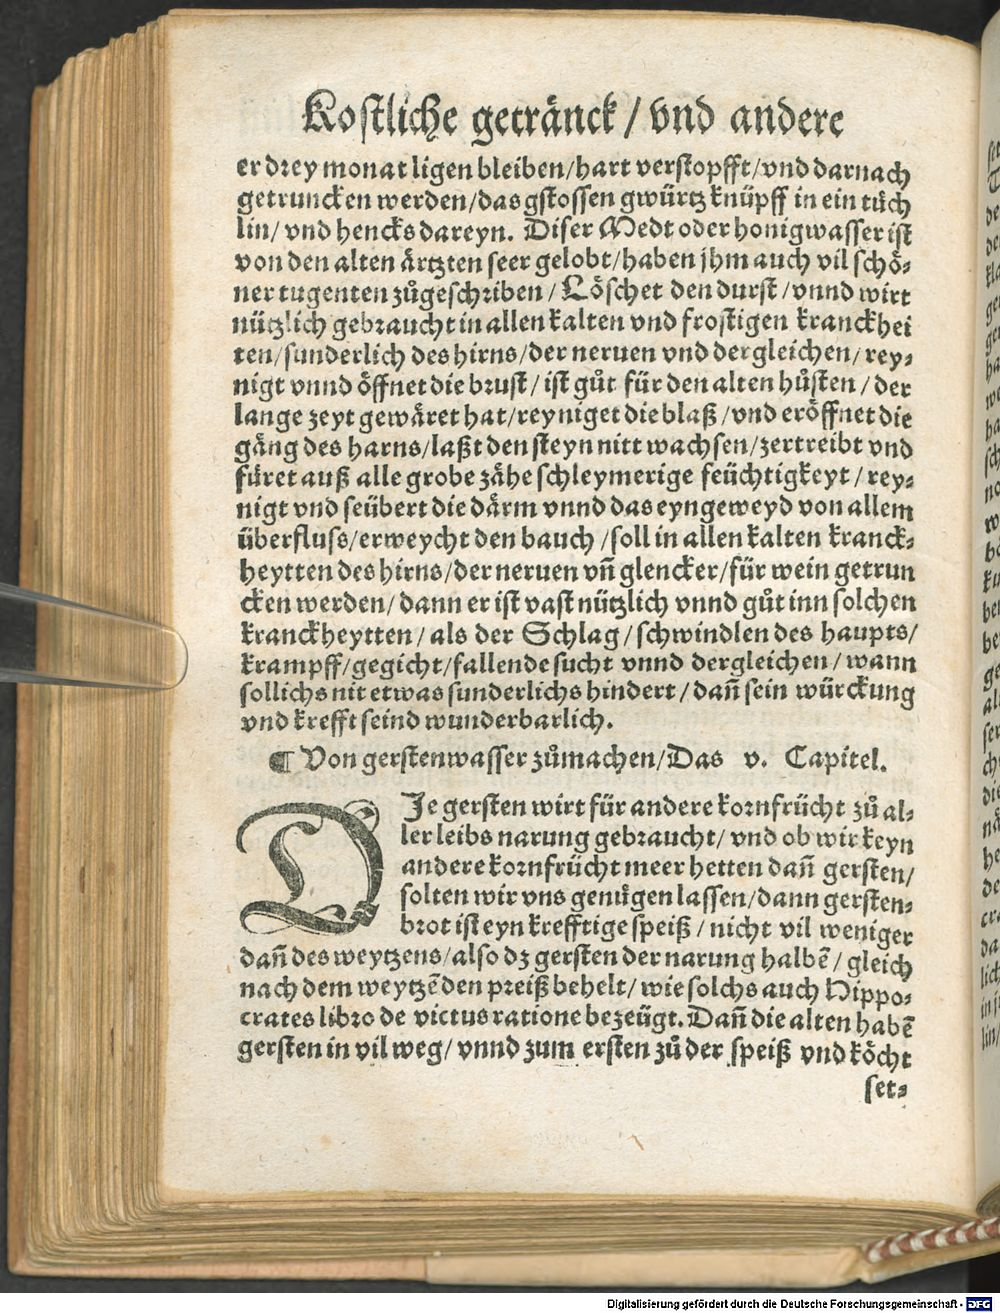 Kostliche getränck / vnd andere
er drey monat ligen bleiben / hart verstopfft / vnd darnach
getruncken werden / das gstossen gwürtz knüpff in ein tůch
lin / vnd hencks dareyn. Diser Medt oder honigwasser ist
von den alten ärtzten seer gelobt / haben jhm auch vil schö⸗
ner tugenten zůgeschriben / Löschet den durst / vnnd wirt
nützlich gebraucht in allen kalten vnd frostigen kranckhei
ten / sunderlich des hirns / der neruen vnd dergleichen / rey⸗
nigt vnnd öffnet die brust / ist gůt für den alten hůsten / der
lange zeyt gewäret hat / reyniget die blaß / vnd eröffnet die
gäng des harns / laßt den steyn nitt wachsen / zertreibt vnd
füret auß alle grobe zähe schleymerige feüchtigkeyt / rey⸗
nigt vnd seübert die därm vnnd das eyngeweyd von allem
überfluss / erweycht den bauch / soll in allen kalten kranck⸗
heytten des hirns / der neruen vñ glencker / für wein getrun
cken werden / dann er ist vast nützlich vnnd gůt inn solchen
kranckheytten / als der Schlag / schwindlen des haupts /
krampff / gegicht / fallende sucht vnnd dergleichen / wann
sollichs nit etwas sunderlichs hindert / dañ sein würckung
vnd krefft seind wunderbarlich.
¶ Von gerstenwasser zůmachen / Das v. Capitel.
DJe gersten wirt für andere kornfrücht zů al⸗
ler leibs narung gebraucht / vnd ob wir keyn
andere kornfrücht meer hetten dañ gersten /
solten wir vns genůgen lassen / dann gersten⸗
brot ist eyn krefftige speiß / nicht vil weniger
dañ des weytzens / also dz gersten der narung halbẽ / gleich
nach dem weytzẽ den preiß behelt / wie solchs auch Hippo⸗
crates libro de victus ratione bezeügt. Dañ die alten habẽ
gersten in vil weg / vnnd zum ersten zů der speiß vnd köcht
set⸗
Digitalisierung gefördert durch die Deutsche Forschungsgemeinschaft - DFG